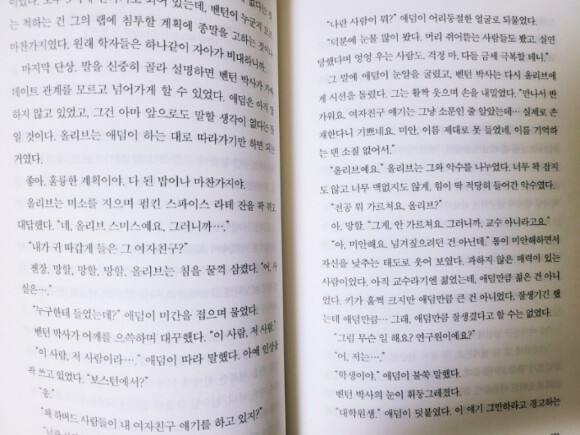 는 척하는 건 그의 랩에 침투할 계획에 종말을 고하는 것이나
마찬가지였다. 원래 학자들은 하나같이 자아가 비대하니까.
마지막 단상, 말을 신중히 골라 설명하면 벤턴 박사가 가짜
데이트 관계를 모르고 넘어가게 할 수 있었다. 애덤은 아직 말
하지 않고 있었고, 그건 아마 앞으로도 말할 생각이 없다는 뜻
일 것이다. 올리브는 애덤이 하는 대로 따라가기만 하면 되는
거였다.
좋아. 훌륭한 계획이야. 다 된 밥이나 마찬가지야.
올리브는 미소를 지으며 펌킨 스파이스 라테 잔을 꽉 쥐고
대답했다. “네, 올리브 스미스예요. 그러니까….”
“내가 귀 따갑게 들은 그 여자친구?”
젠장, 망할, 망할, 망할. 올리브는 침을 꿀꺽 삼켰다. “어, 사
실은….”
“누구한테 들었는데?” 애덤이 미간을 접으며 물었다.
벤턴 박사가 어깨를 으쓱하며 대꾸했다. “이 사람, 저 사람.”
“이 사람, 저 사람이라….” 애덤이 따라 말했다. 아예 인상을
팍 쓰고 있었다. “보스턴에서?”
“응.”
“왜 하버드 사람들이 내 여자친구 얘기를 하고 있지?”
“나란 사람이 뭐?” 애덤이 어리둥절한 얼굴로 되물었다.
“덕분에 눈물 많이 봤다. 머리 쥐어뜯는 사람들도 봤고. 실연
당했다며 엉엉 우는 사람도, 걱정 마, 다들 금세 극복할 테니.”
그 말에 애덤이 눈알을 굴렸고, 벤턴 박사는 다시 올리브에
게 시선을 돌렸다. 그는 활짝 웃으며 손을 내밀었다. “만나서 반
가워요. 여자친구 얘기는 그냥 소문인 줄 알았는데… 실제로 존
재한다니 기쁘네요. 미안, 이름 제대로 못 들었네, 이름 기억하
는 덴 소질 없어서.”
“올리브예요.” 올리브는 그와 악수를 나누었다. 너무 꽉 잡지
도 않고 너무 맥없지도 않게, 힘이 딱 적당히 들어간 악수였다.
“전공 뭐 가르쳐요, 올리브?”
아, 망할. “그게, 안 가르쳐요. 그러니까, 교수 아니라고요.”
“아, 미안해요. 넘겨짚으려던 건 아닌데.” 톰이 미안해하면서
자신을 낮추는 태도로 웃어 보였다. 과하지 않은 매력이 있는
사람이었다. 아직 교수라기엔 젊었는데, 애덤만큼 젊은 건 아니
었다. 키가 훌쩍 크지만 애덤만큼 큰 건 아니었다. 잘생기긴 했
는데 애덤만큼… 그래, 애덤만큼 잘생겼다고 할 수는 없었다.
“그럼 무슨 일 해요? 연구원이에요?”
“어, 저는….”
“학생이야.” 애덤이 불쑥 말했다.
벤턴 박사의 눈이 휘둥그레졌다.
“대학원생.” 애덤이 덧붙였다. 이 얘기 그만하라고 경고하는